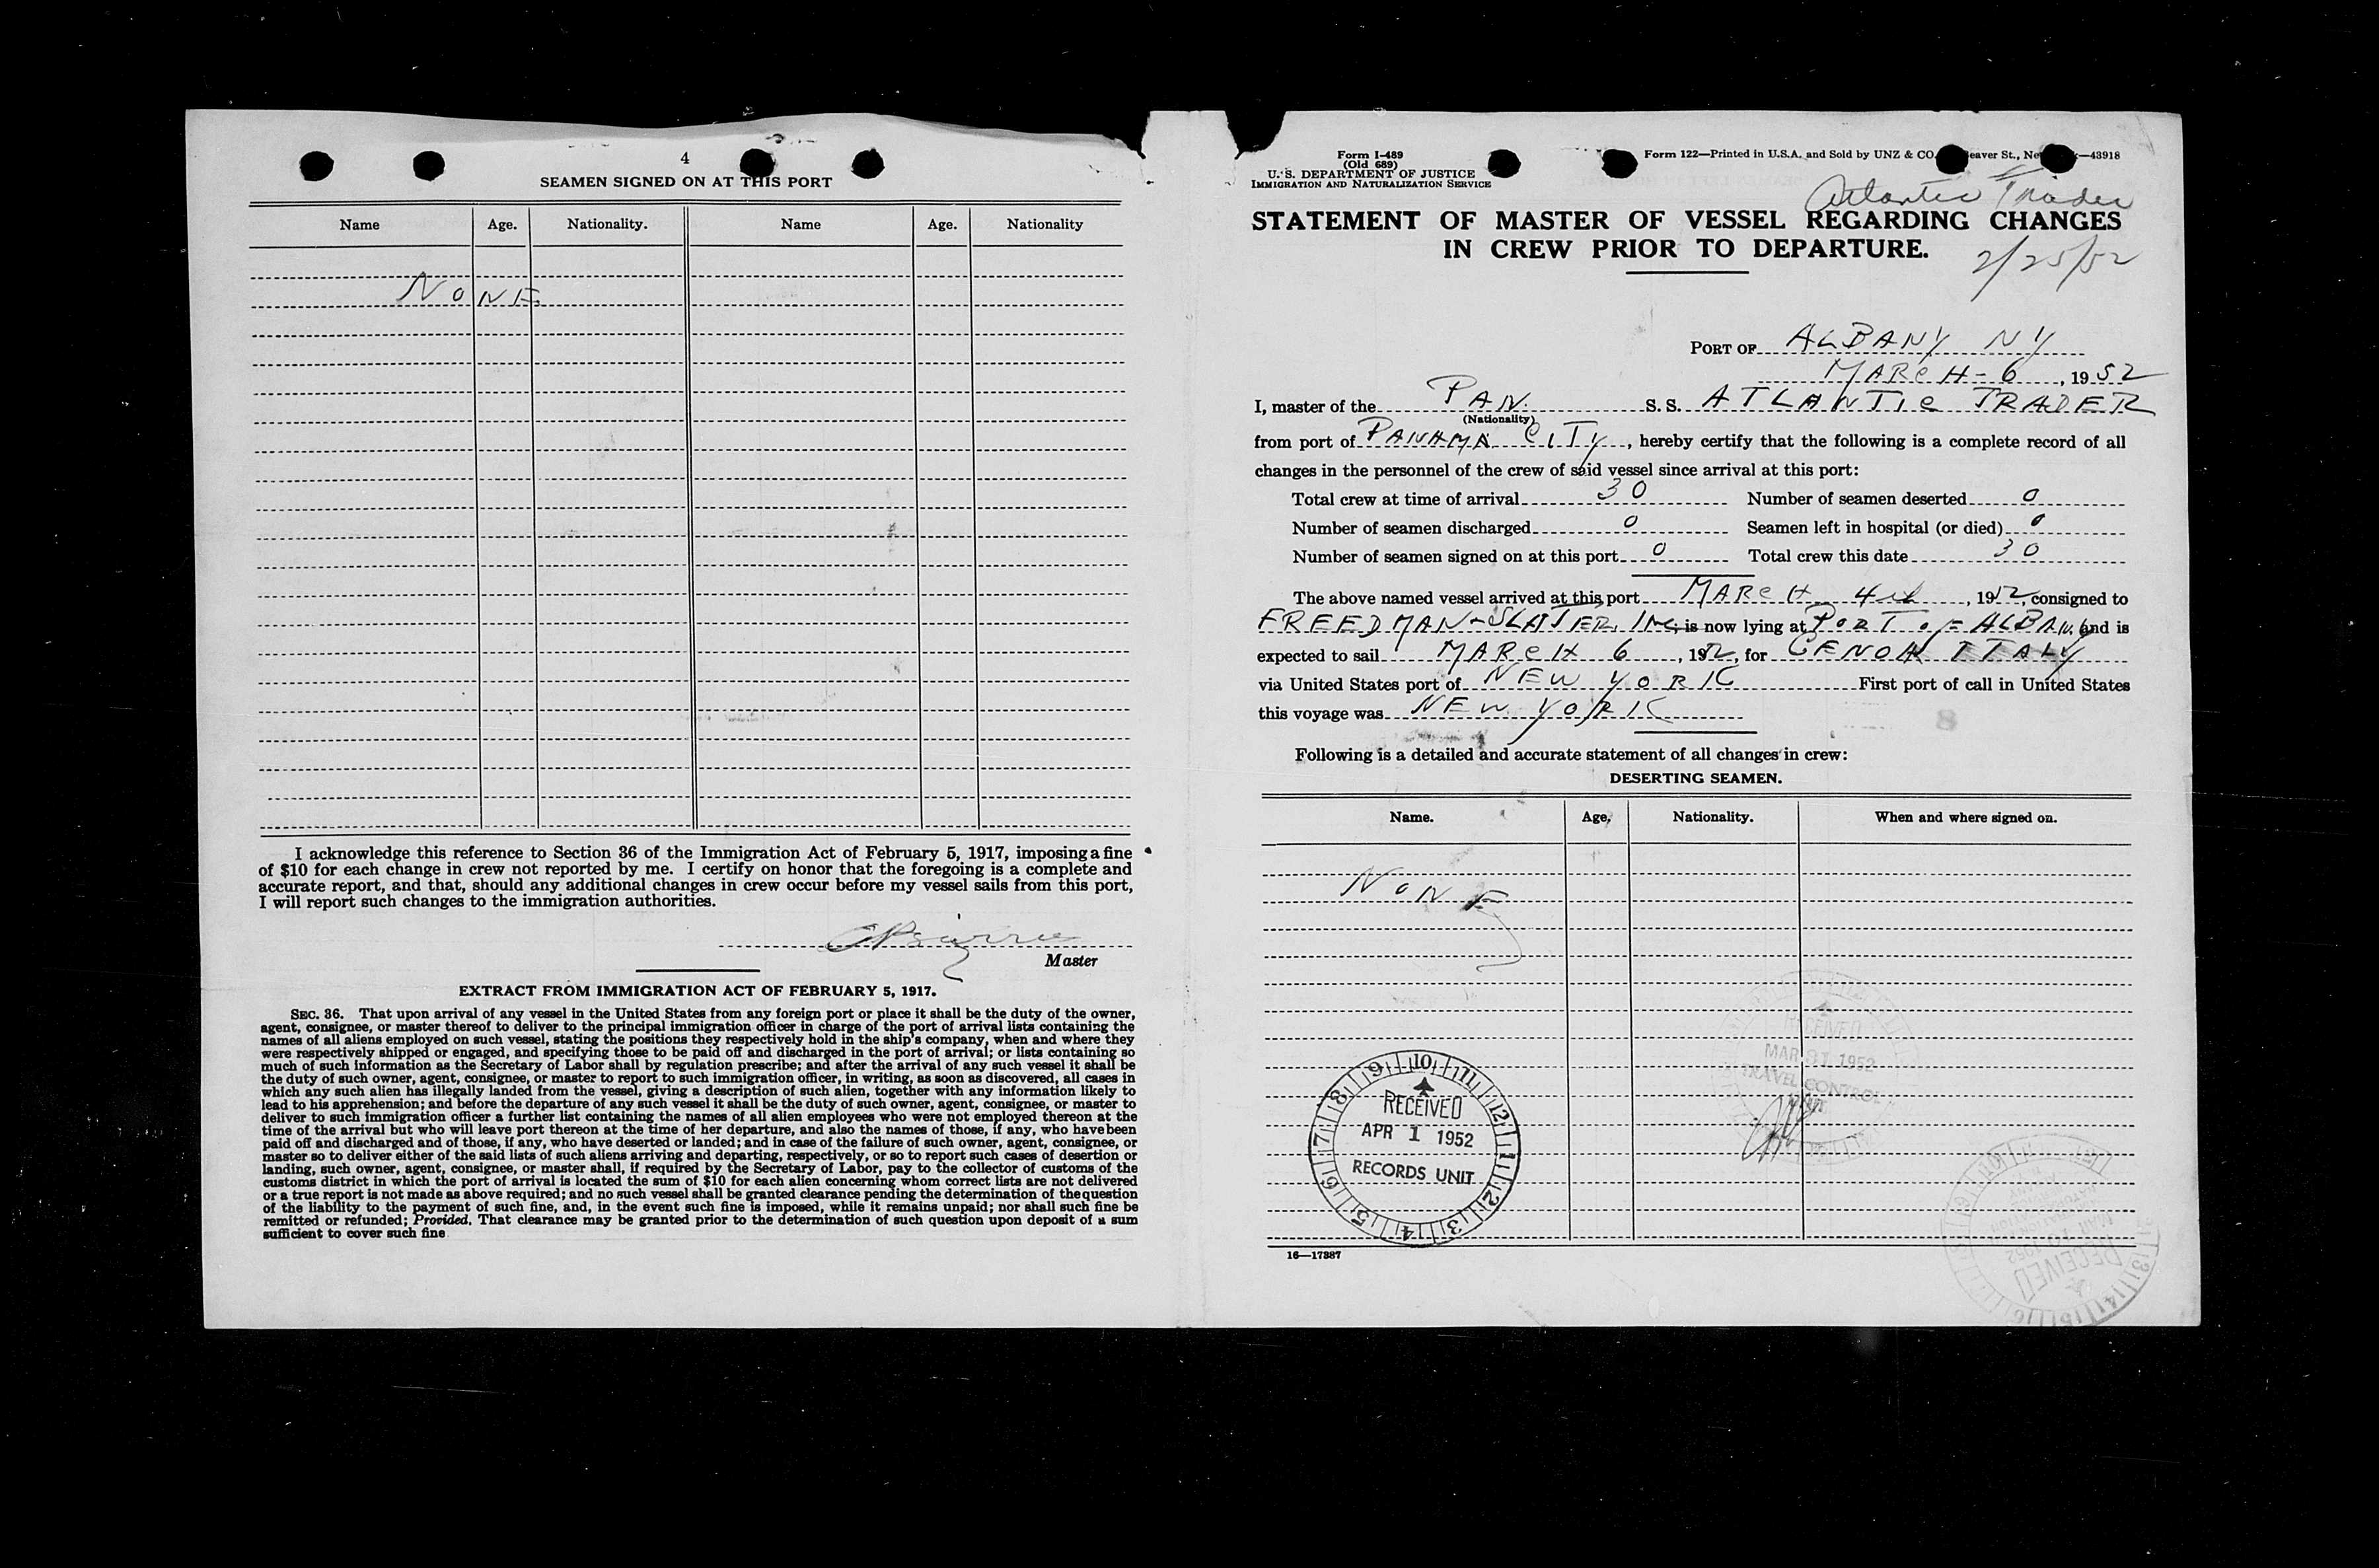 4
SEAMEN SIGNED ON AT THIS PORT
Name Age. Nationality. Name Age. Nationality
NONE
I acknowledge this reference to Section 36 of the Immigration Act of February 5, 1917, imposing a fine
of $10 for each change in crew not reported by me. I certify on honor that the foregoing is a complete and
accurate report, and that, should any additional changes in crew occur before my vessel sails from this port,
I will report such changes to the immigration authorities.
Master
EXTRACT FROM IMMIGRATION ACT OF FEBRUARY 5, 1917.
SEC. 36. That upon arrival of any vessel in the United States from any foreign port or place it shall be the duty of the owner,
agent, consignee, or master thereof to deliver to the principal immigration officer in charge of the port of arrival lists containing the
names of all aliens employed on such vessel, stating the positions they respectively hold in the ship's company, when and where they
were respectively shipped or engaged, and specifying those to be paid off and discharged in the port of arrival; or lists containing so
much of such information as the Secretary of Labor shall by regulation prescribe; and after the arrival of any such vessel it shall be
the duty of such owner, agent, consignee, or master to report to such immigration officer, in writing, as soon as discovered, all cases in
which any such alien has illegally landed from the vessel, giving a description of such alien, together with any information likely to
lead to his apprehension; and before the departure of any such vessel it shall be the duty of such owner, agent, consignee, or master to
deliver to such immigration officer a further list containing the names of all alien employees who were not employed thereon at the
time of the arrival but who will leave port thereon at the time of her departure, and also the names of those, if any, who have been
paid off and discharged and of those, if any, who have deserted or landed; and in case of the failure of such owner, agent, consignee, or
master so to deliver either of the said lists of such aliens arriving and departing, respectively, or so to report such cases of desertion or
landing, such owner, agent, consignee, or master shall, if required by the Secretary of Labor, pay to the collector of customs of the
customs district in which the port of arrival is located the sum of $10 for each alien concerning whom correct lists are not delivered
or a true report is not made as above required; and no such vessel shall be granted clearance pending the determination of the question
of the liability to the payment of such fine, and, in the event such fine is imposed, while it remains unpaid; nor shall such fine be
remitted or refunded; Provided, That clearance may be granted prior to the determination of such question upon deposit of a sum
sufficient to cover such fine
Form I-489
(Old 689)
U. S. DEPARTMENT OF JUSTICE
IMMIGRATION AND NATURALIZATION SERVICE
Form 122—Printed in U.S.A. and Sold by UNZ & CO. eaver St., Ne —43918
Atlantic Trader
STATEMENT OF MASTER OF VESSEL REGARDING CHANGES
IN CREW PRIOR TO DEPARTURE.
2/25/52
PORT OF ALBANY NY
MARCH - 6, 1952
I, master of the PAN. S. S. ATLANTIC TRADER
(Nationality)
from port of PANAMA CITY, hereby certify that the following is a complete record of all
changes in the personnel of the crew of said vessel since arrival at this port:
Total crew at time of arrival 30 Number of seamen deserted 0
Number of seamen discharged 0 Seamen left in hospital (or died) 0
Number of seamen signed on at this port 0 Total crew this date 30
The above named vessel arrived at this port MARCH 4th, 1952, consigned to
FREEDMAN-SLATER, INC, is now lying at PORT OF ALBANY and is
expected to sail MARCH 6, 1952, for GENOA ITALY
via United States port of NEW YORK First port of call in United States
this voyage was NEW YORK
Following is a detailed and accurate statement of all changes in crew:
DESERTING SEAMEN.
Name. Age. Nationality. When and where signed on.
NONE
RECEIVED
MAR 31 1952
TRAVEL CONTROL
UNIT
9 10 11 12 1 2 3 4 5 6 7 8
RECEIVED
APR 1 1952
RECORDS UNIT
RECEIVED
MAR 10 1952
16—17387